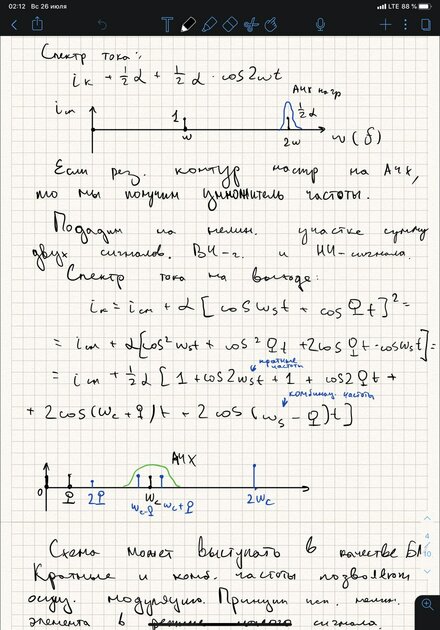 02:12 Вс 26 июля
LTE 88 %
Спектр тока:
iк + 1/2 α + 1/2 α · cos2ωt
АЧХ нагр
iм 1 1/2 α
ω 2ω ω(б)
Если рез. контур настр на АЧХ,
то мы получим умножитель частоты.
Подадим на нелин. участке сумму
двух сигналов. ВЧ-г. и НЧ-сигнала.
Спектр тока на выходе:
iк = iсм + α[cosωst + cosΩt]² =
= iсм + α[cos²ωst + cos²Ωt + 2cosΩt·cosωst] =
кратные
частоты
= iсм + 1/2 α [1 + cos2ωst + 1 + cos2Ωt +
комбинац. частоты
+ 2cos(ωc+Ω)t + 2cos(ωs-Ω)t]
АЧХ
0 Ω 2Ω ωc-Ω ωc ωc+Ω 2ωc
Схема может выступать в качестве БМ
4
Кратные и комб. частоты позволяют
10
осущ. модуляцию. Принцип исп. нелин.
элемента в сигнала.